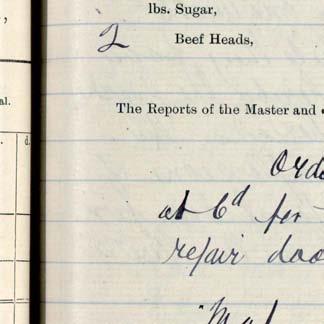 lbs. Sugar,
2 Beef Heads,
al.
d.
The Reports of the Master and
Orde
at 6d per
repair doo